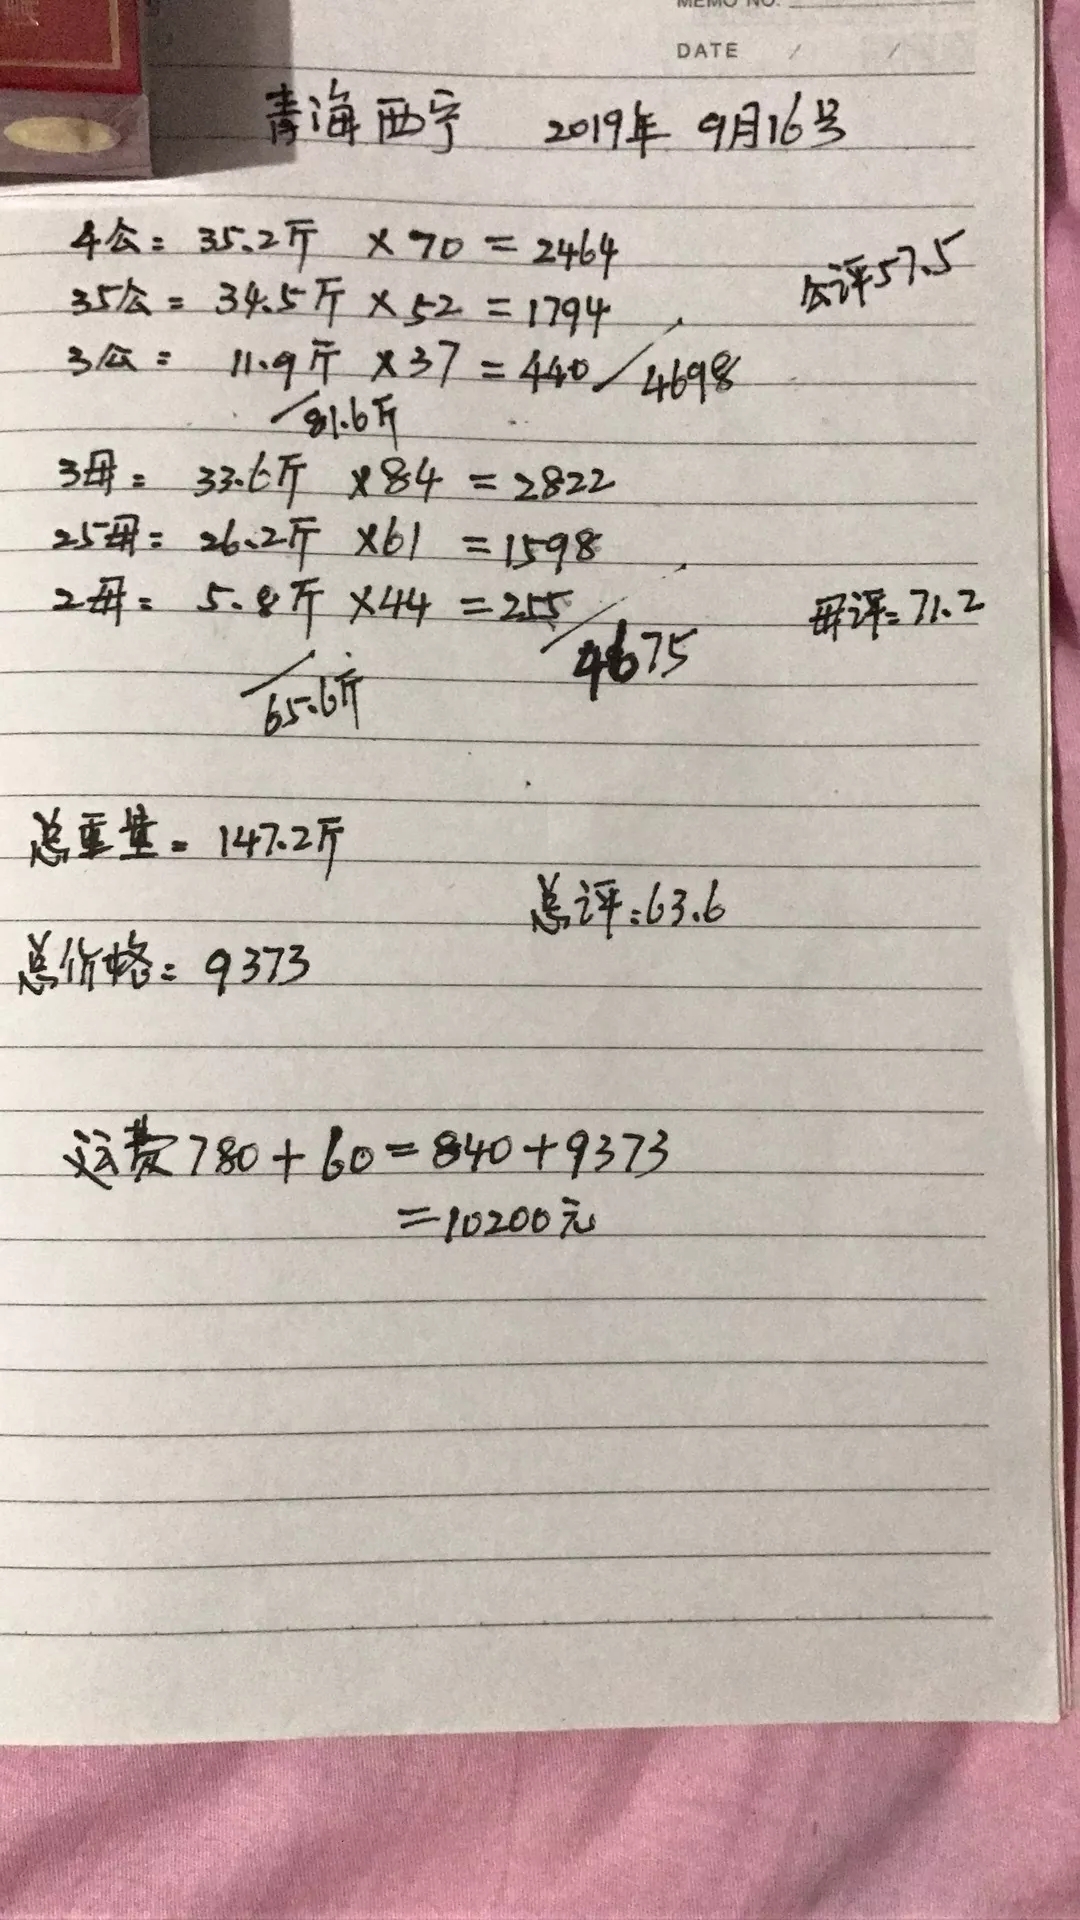 MEMO NO.
DATE / /
青海西宁 2019年 9月16号
4公= 35.2斤 ×70 = 2464
公评57.5
35公= 34.5斤 ×52 = 1794
3公= 11.9斤 ×37 = 440 / 4698
/ 81.6斤
3母= 33.6斤 ×84 = 2822
25母= 26.2斤 ×61 = 1598
2母= 5.8斤 ×44 = 255 母评=71.2
/ 4675
/ 65.6斤
总重量= 147.2斤
总评:63.6
总价格= 9373
运费780+60=840+9373
=10200元